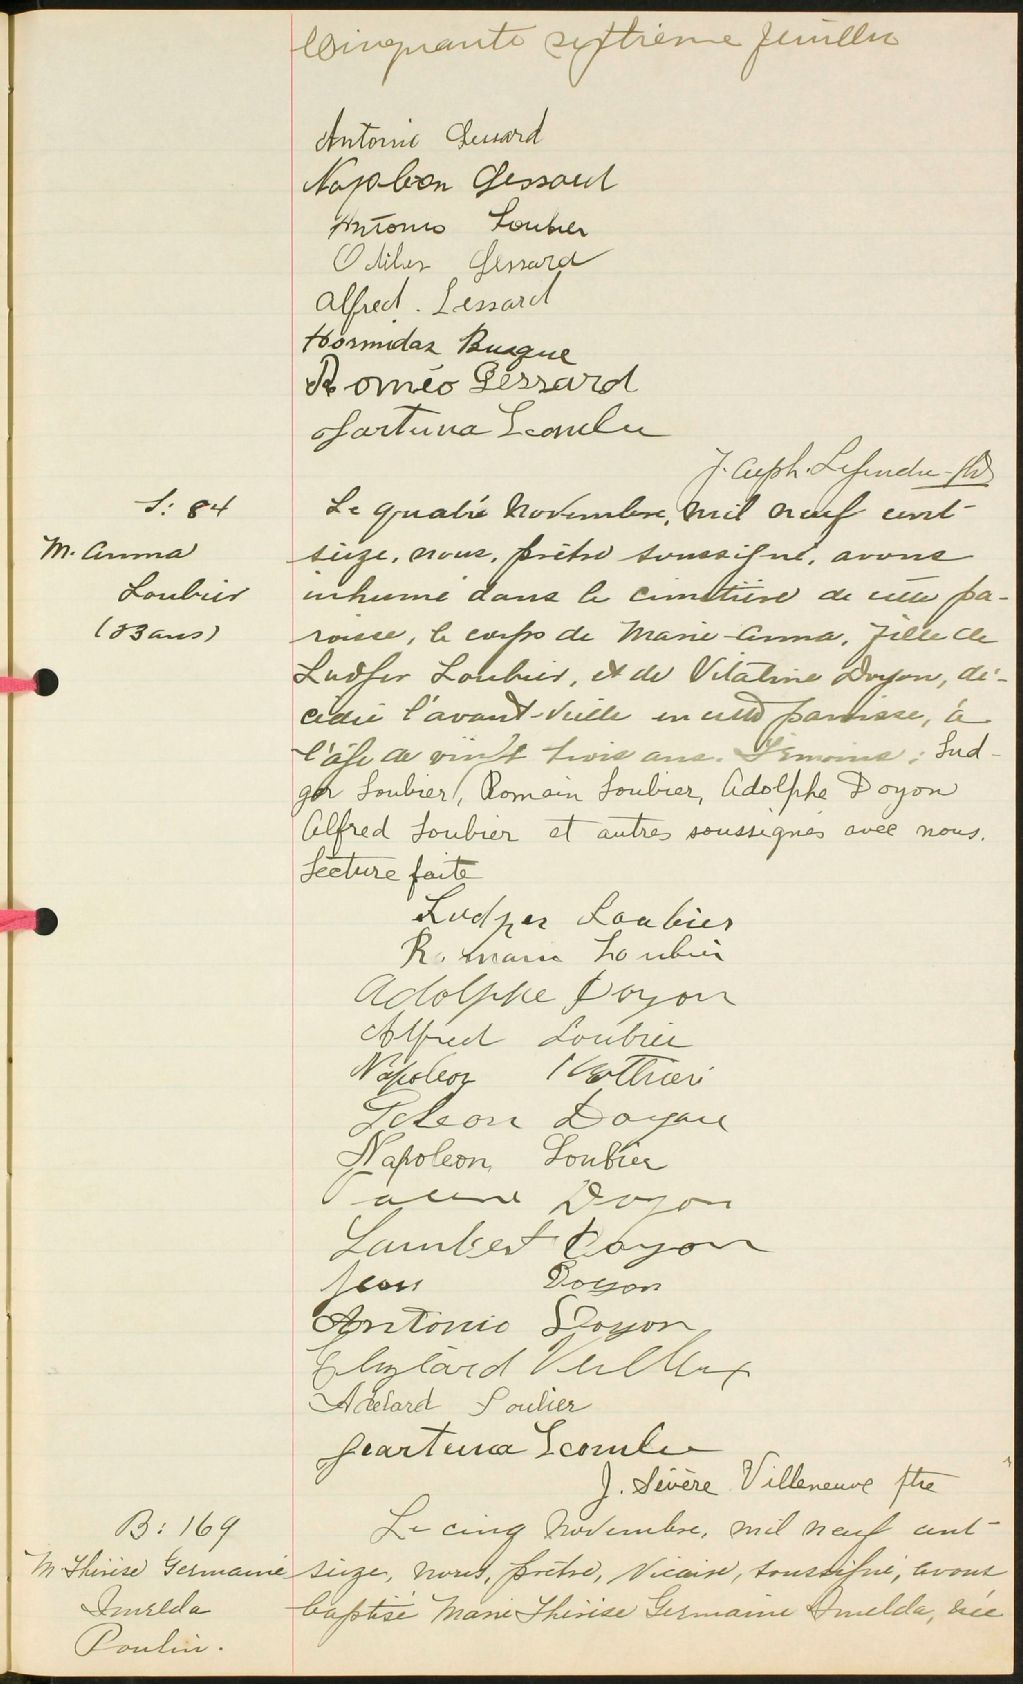 Cinquante septième feuillet
Antonio Lessard
Napoléon Lessard
Antonio Loubier
Odilon Lessard
Alfred. Lessard
Hormidas Busque
Roméo Lessard
Fortuna
J. Lefendre ptre
S: 84
M. Anna
Loubier
(23 ans)
Le quatre Novembre, mil neuf cent-
seize, nous, prêtre soussigné, avons
inhumé dans le cimetière de cette pa-
roisse, le corps de Marie-Anna, fille de
Ludger Loubier, et de Vitaline Doyon, dé-
cédée l'avant-veille en cette paroisse, à
l'âge de vingt trois ans. Témoins: Lud-
ger Loubier, Romain Loubier, Adolphe Doyon
Alfred Loubier et autres soussignés avec nous.
Lecture faite
Ludger Loubier
Romain Loubier
Adolphe Doyon
Alfred Loubier
Napoleon
Gédeon Doyon
Napoleon Loubier
Doyon
Lambert Doyon
Jean Doyon
Antonio Doyon
Veilleux
Adelard Loubier
Fortuna
J. Sévère Villeneuve ptre
B: 169
M Thérèse Germaine
Imelda
Poulin.
Le cinq Novembre, mil neuf cent-
seize, nous, prêtre, Vicaire, soussigné, avons
baptisé Marie Thérèse Germaine Imelda, née